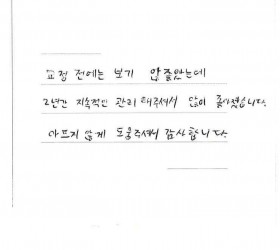 교정 전에는 보기 안좋았는데
2년간 지속적인 관리 해주셔서 많이 좋아졌습니다.
아프지 않게 도움주셔서 감사합니다.